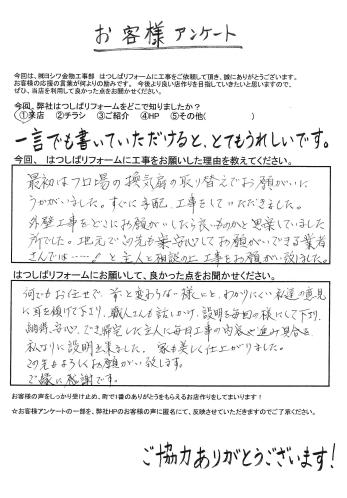 お客様アンケート
今回は、㈱ヨシワ金物工事部 はつしばリフォームに工事をご依頼して頂き、誠にありがとうございます。
お客様の応援の言葉が何よりの励みです。 今後より良い店作りを目指していきたいと思いますので、
ぜひ、当店を利用して良かった点をお聞かせください。
今回、弊社はつしばリフォームをどこで知りましたか？
①来店 ②チラシ ③ご紹介 ④HP ⑤その他( )
一言でも書いていただけると、とてもうれしいです。
今回、 はつしばリフォームに工事をお願いした理由を教えてください。
最初はフロ場の換気扇の取り替えでお願いに
うかがいました。すぐに手配、工事をしていただきました。
外壁工事をどこにお願いしたら良いものかと思案していました
所でした。地元でこの先も安心してお願いできる業者
さんでは……! と主人と相談の上工事をお願い致しました。
はつしばリフォームにお願いして、良かった点をお聞かせください。
何でもお任せで、前と変わらない様にと、わかりにくい私達の意見
に耳を傾けて下り、職人さんも話しかけ、説明を毎日の様にして下り、
納得、安心、でき帰宅した主人に毎日工事の内容、進み具合を
私なりに説明出来ました。 家も美しく仕上がりました。
この先もよろしくお願い致します。
ご縁に感謝です。
お客様の声をしっかり受け止め、町で1番のありがとうをもらえるお店作りをしてまいります！
☆お客様アンケートの一部を、弊社HPのお客様の声に匿名にて、反映させていただきますのでご了承ください。
ご協力ありがとうございます!